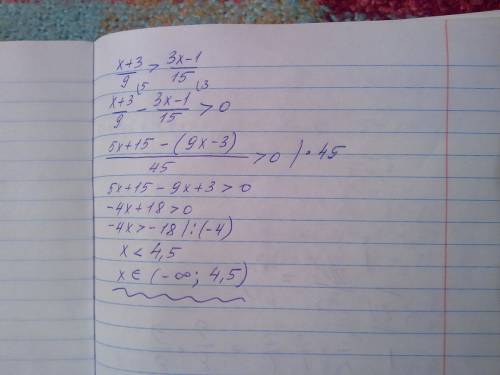 x+3/9 > 3x-1/15
x+3/9 (5 - 3x-1/15 (3 > 0
5x+15-(9x-3)/45 > 0 |·45
5x+15-9x+3>0
-4x+18>0
-4x>-18 |:(-4)
x<4,5
x∈(-∞; 4,5)